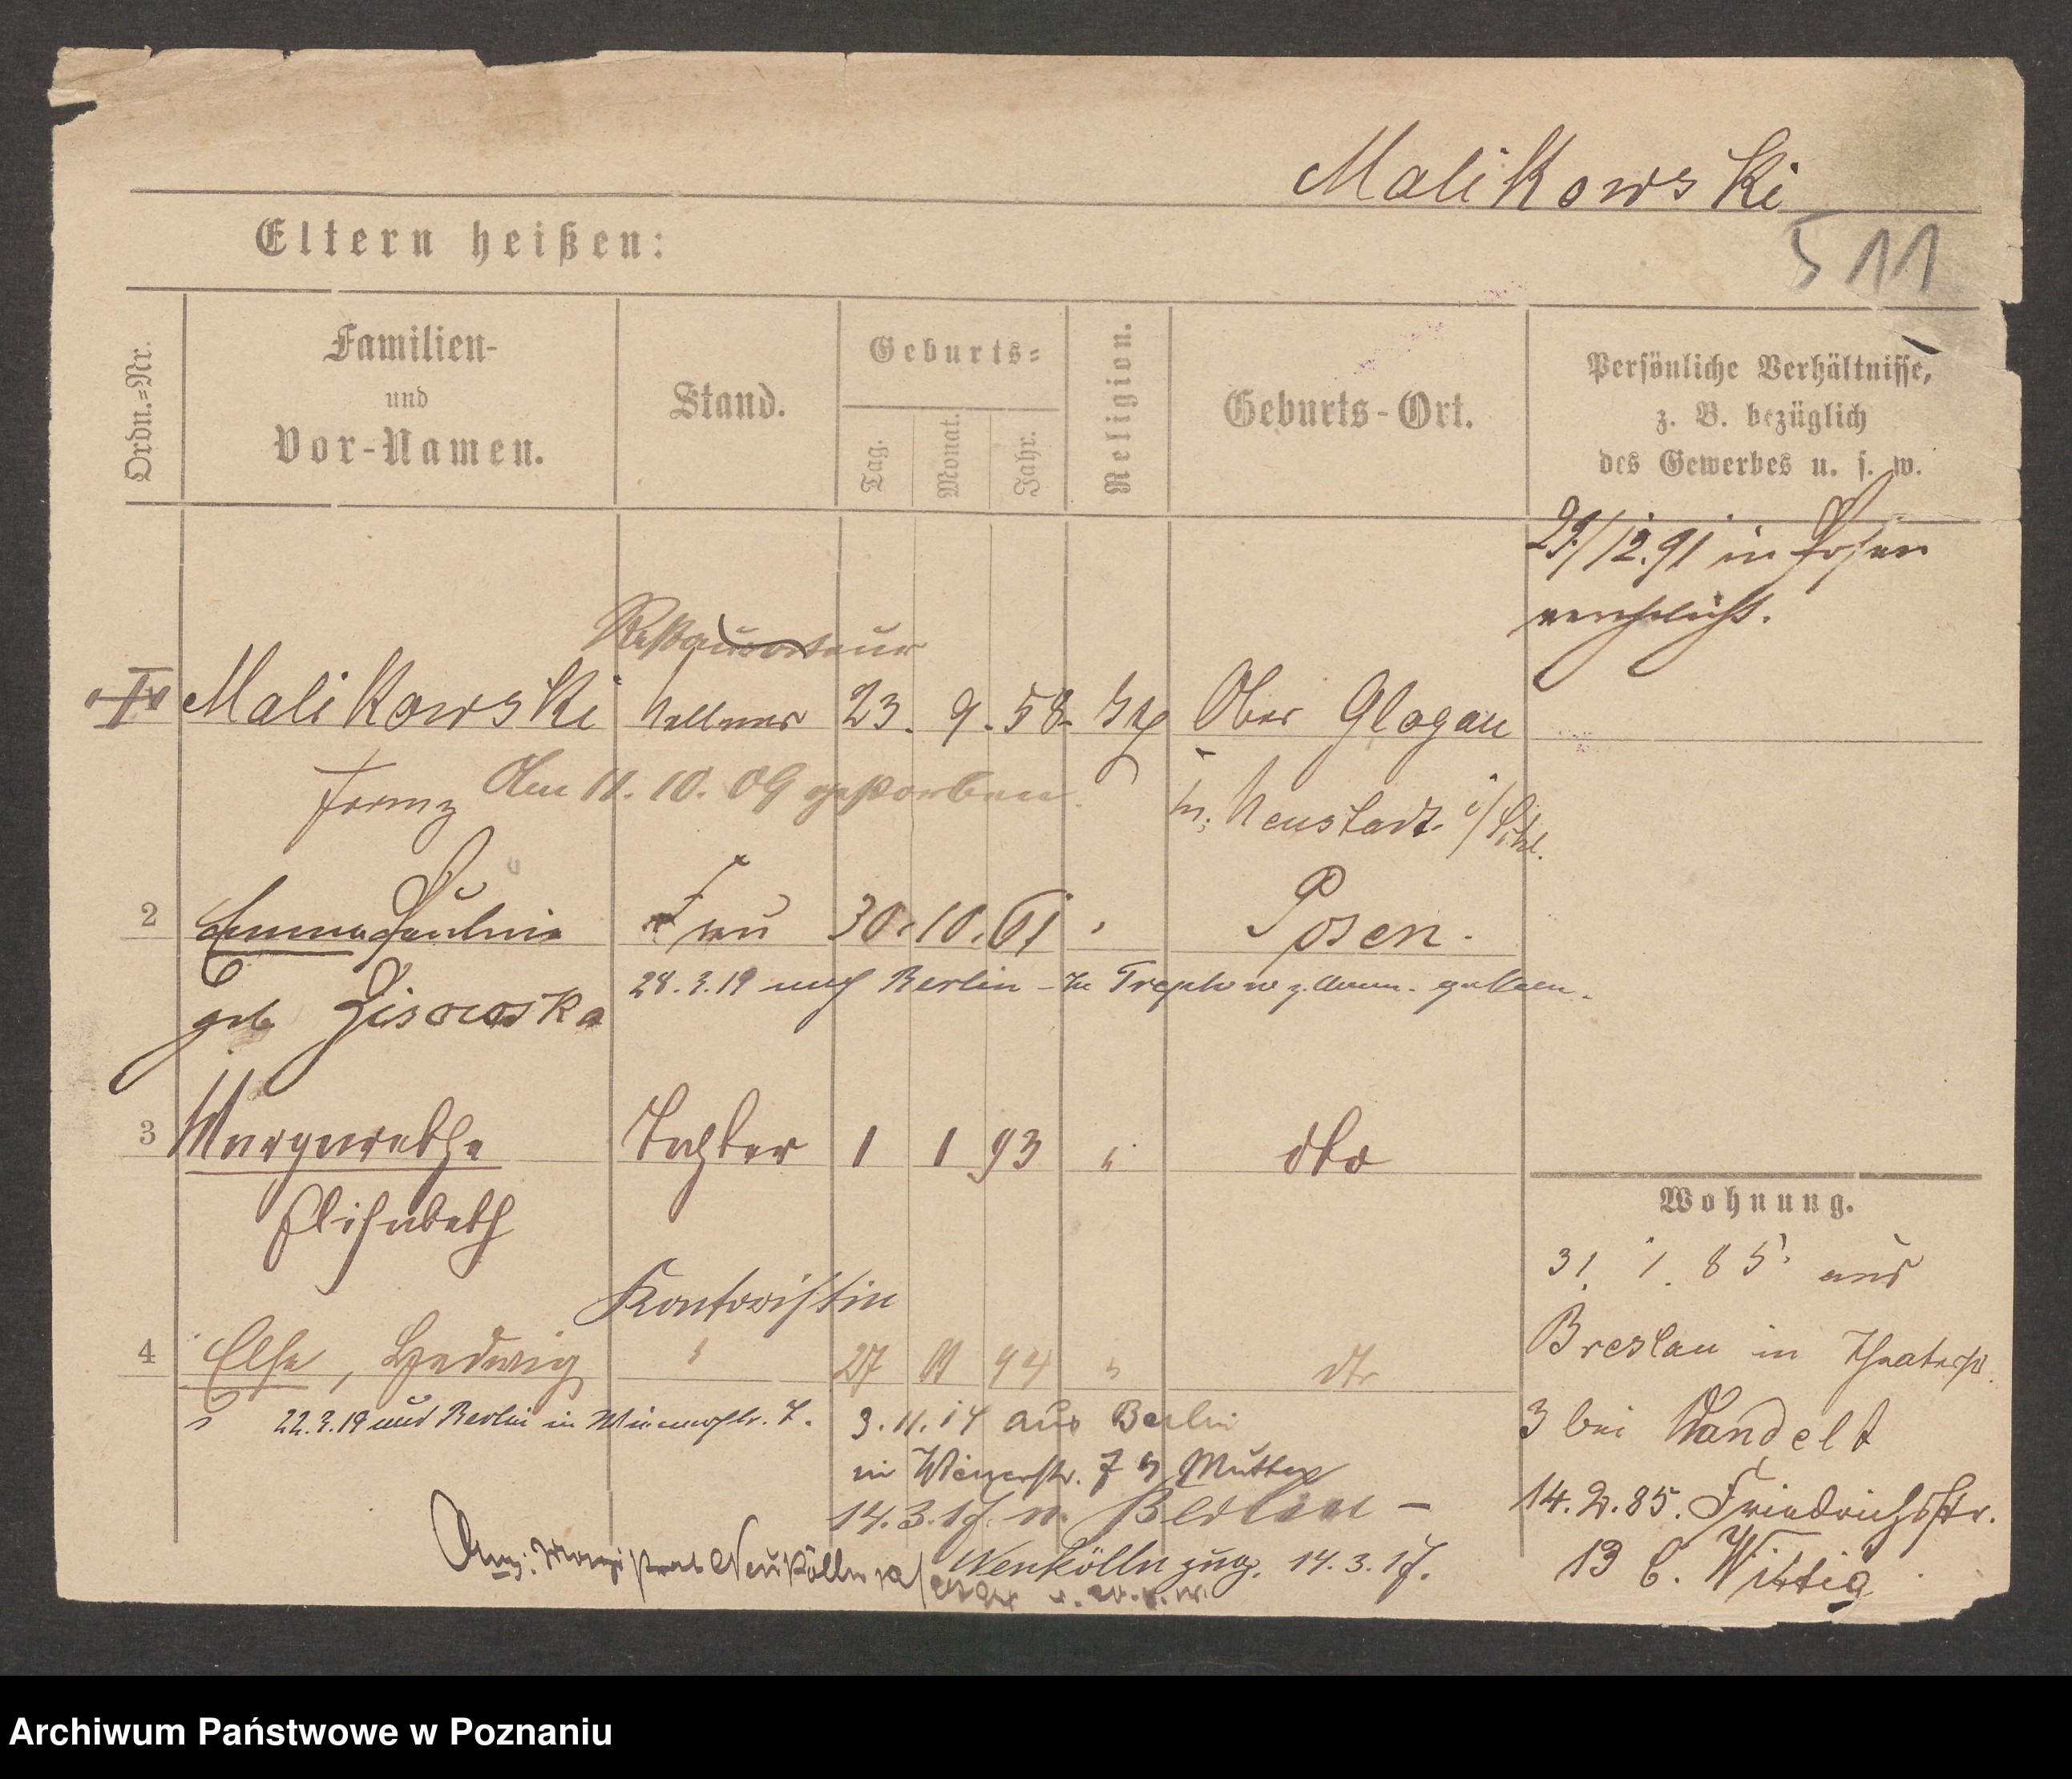 Malikowski
511
Eltern heißen:
Ordn.=Nr.
Familien-
und
Vor-Namen.
Stand.
Geburts=
Tag.
Monat.
Jahr.
Religion.
Geburts-Ort.
Persönliche Verhältnisse,
z. B. bezüglich
des Gewerbes u. s. w.
29/12.91 in Posen
verehelicht.
Restaurateur
Malikowski Kellner 23. 9. 58. Ober Glogau
Franz Am 11. 10. 09 gestorben. Neustadt i/Schl.
2 Emma Pauline Frau 30. 10. 61 " Posen.
geb 28.3.19 nach Berlin - Treptow
3 Margarethe Tochter 1 1 93 " dto
Elisabeth
Kontoristin
4 Else, Hedwig " 27 11 94 " dto
22.3.19 aus Berlin in Wienerstr. 7.
3.11.14 aus Berlin
in Wienerstr. 7 b Mutter
14.3.17. n. Berlin -
Neukölln zug. 14.3.17.
Wohnung.
31. 1. 85 aus
Breslau in Theaterstr.
3 bei Wandelt
14.2.85. Friedrichsstr.
13 b. Wittig
Archiwum Państwowe w Poznaniu